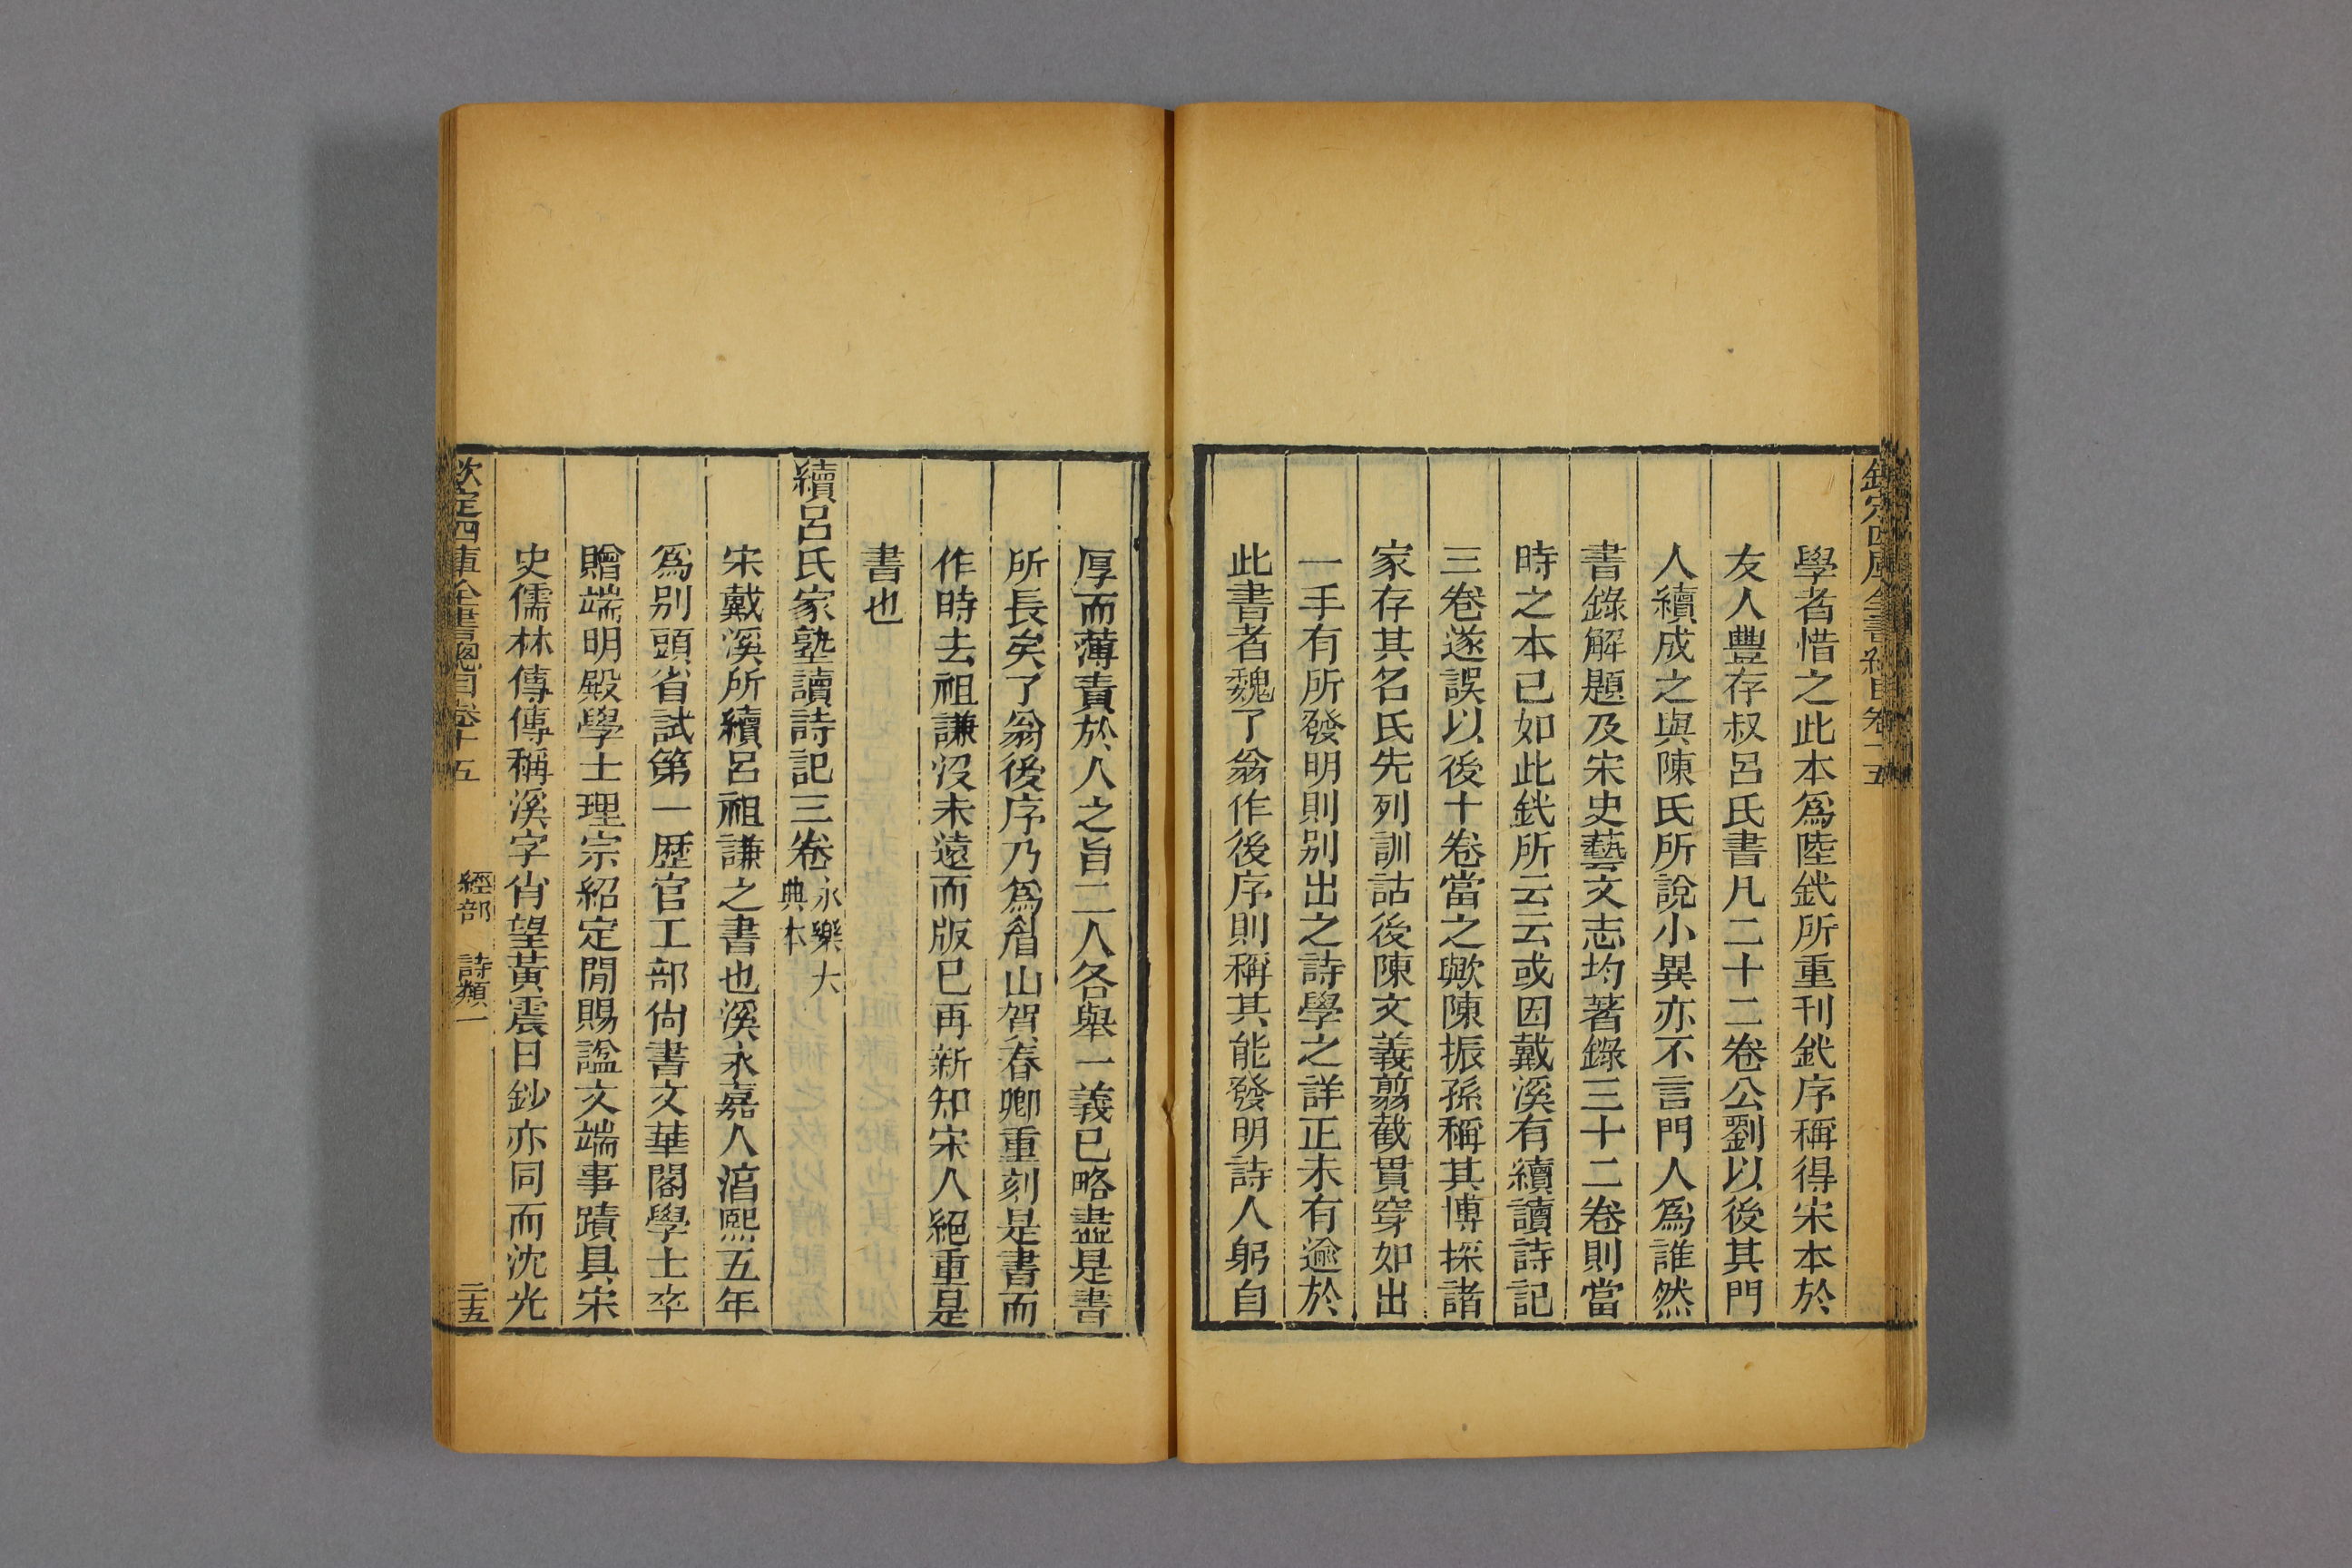 欽定四庫全書總目卷十五
學者惜之此本爲陸釴所重刊釴序稱得宋本於
友人豐存叔呂氏書凡二十二卷公劉以後其門
人續成之與陳氏所說小異亦不言門人爲誰然
書錄解題及宋史藝文志均著錄三十二卷則當
時之本已如此釴所云云或因戴溪有續讀詩記
三卷遂誤以後十卷當之歟陳振孫稱其博採諸
家存其名氏先列訓詁後陳文義翦截貫穿如出
一手有所發明則别出之詩學之詳正未有逾於
此書者魏了翁作後序則稱其能發明詩人躬自
厚而薄責於人之旨二人各舉一義已略盡是書
所長矣了翁後序乃爲眉山賀春卿重刻是書而
作時去祖謙沒未遠而版已再新知宋人絕重是
書也
續呂氏家塾讀詩記三卷永樂大典本
宋戴溪所續呂祖謙之書也溪永嘉人淳熙五年
爲别頭省試第一歷官工部尙書文華閣學士卒
贈端明殿學士理宗紹定閒賜諡文端事蹟具宋
史儒林傳傳稱溪字肖望黃震日鈔亦同而沈光
欽定四庫全書總目卷十五 經部 詩類一 二十五